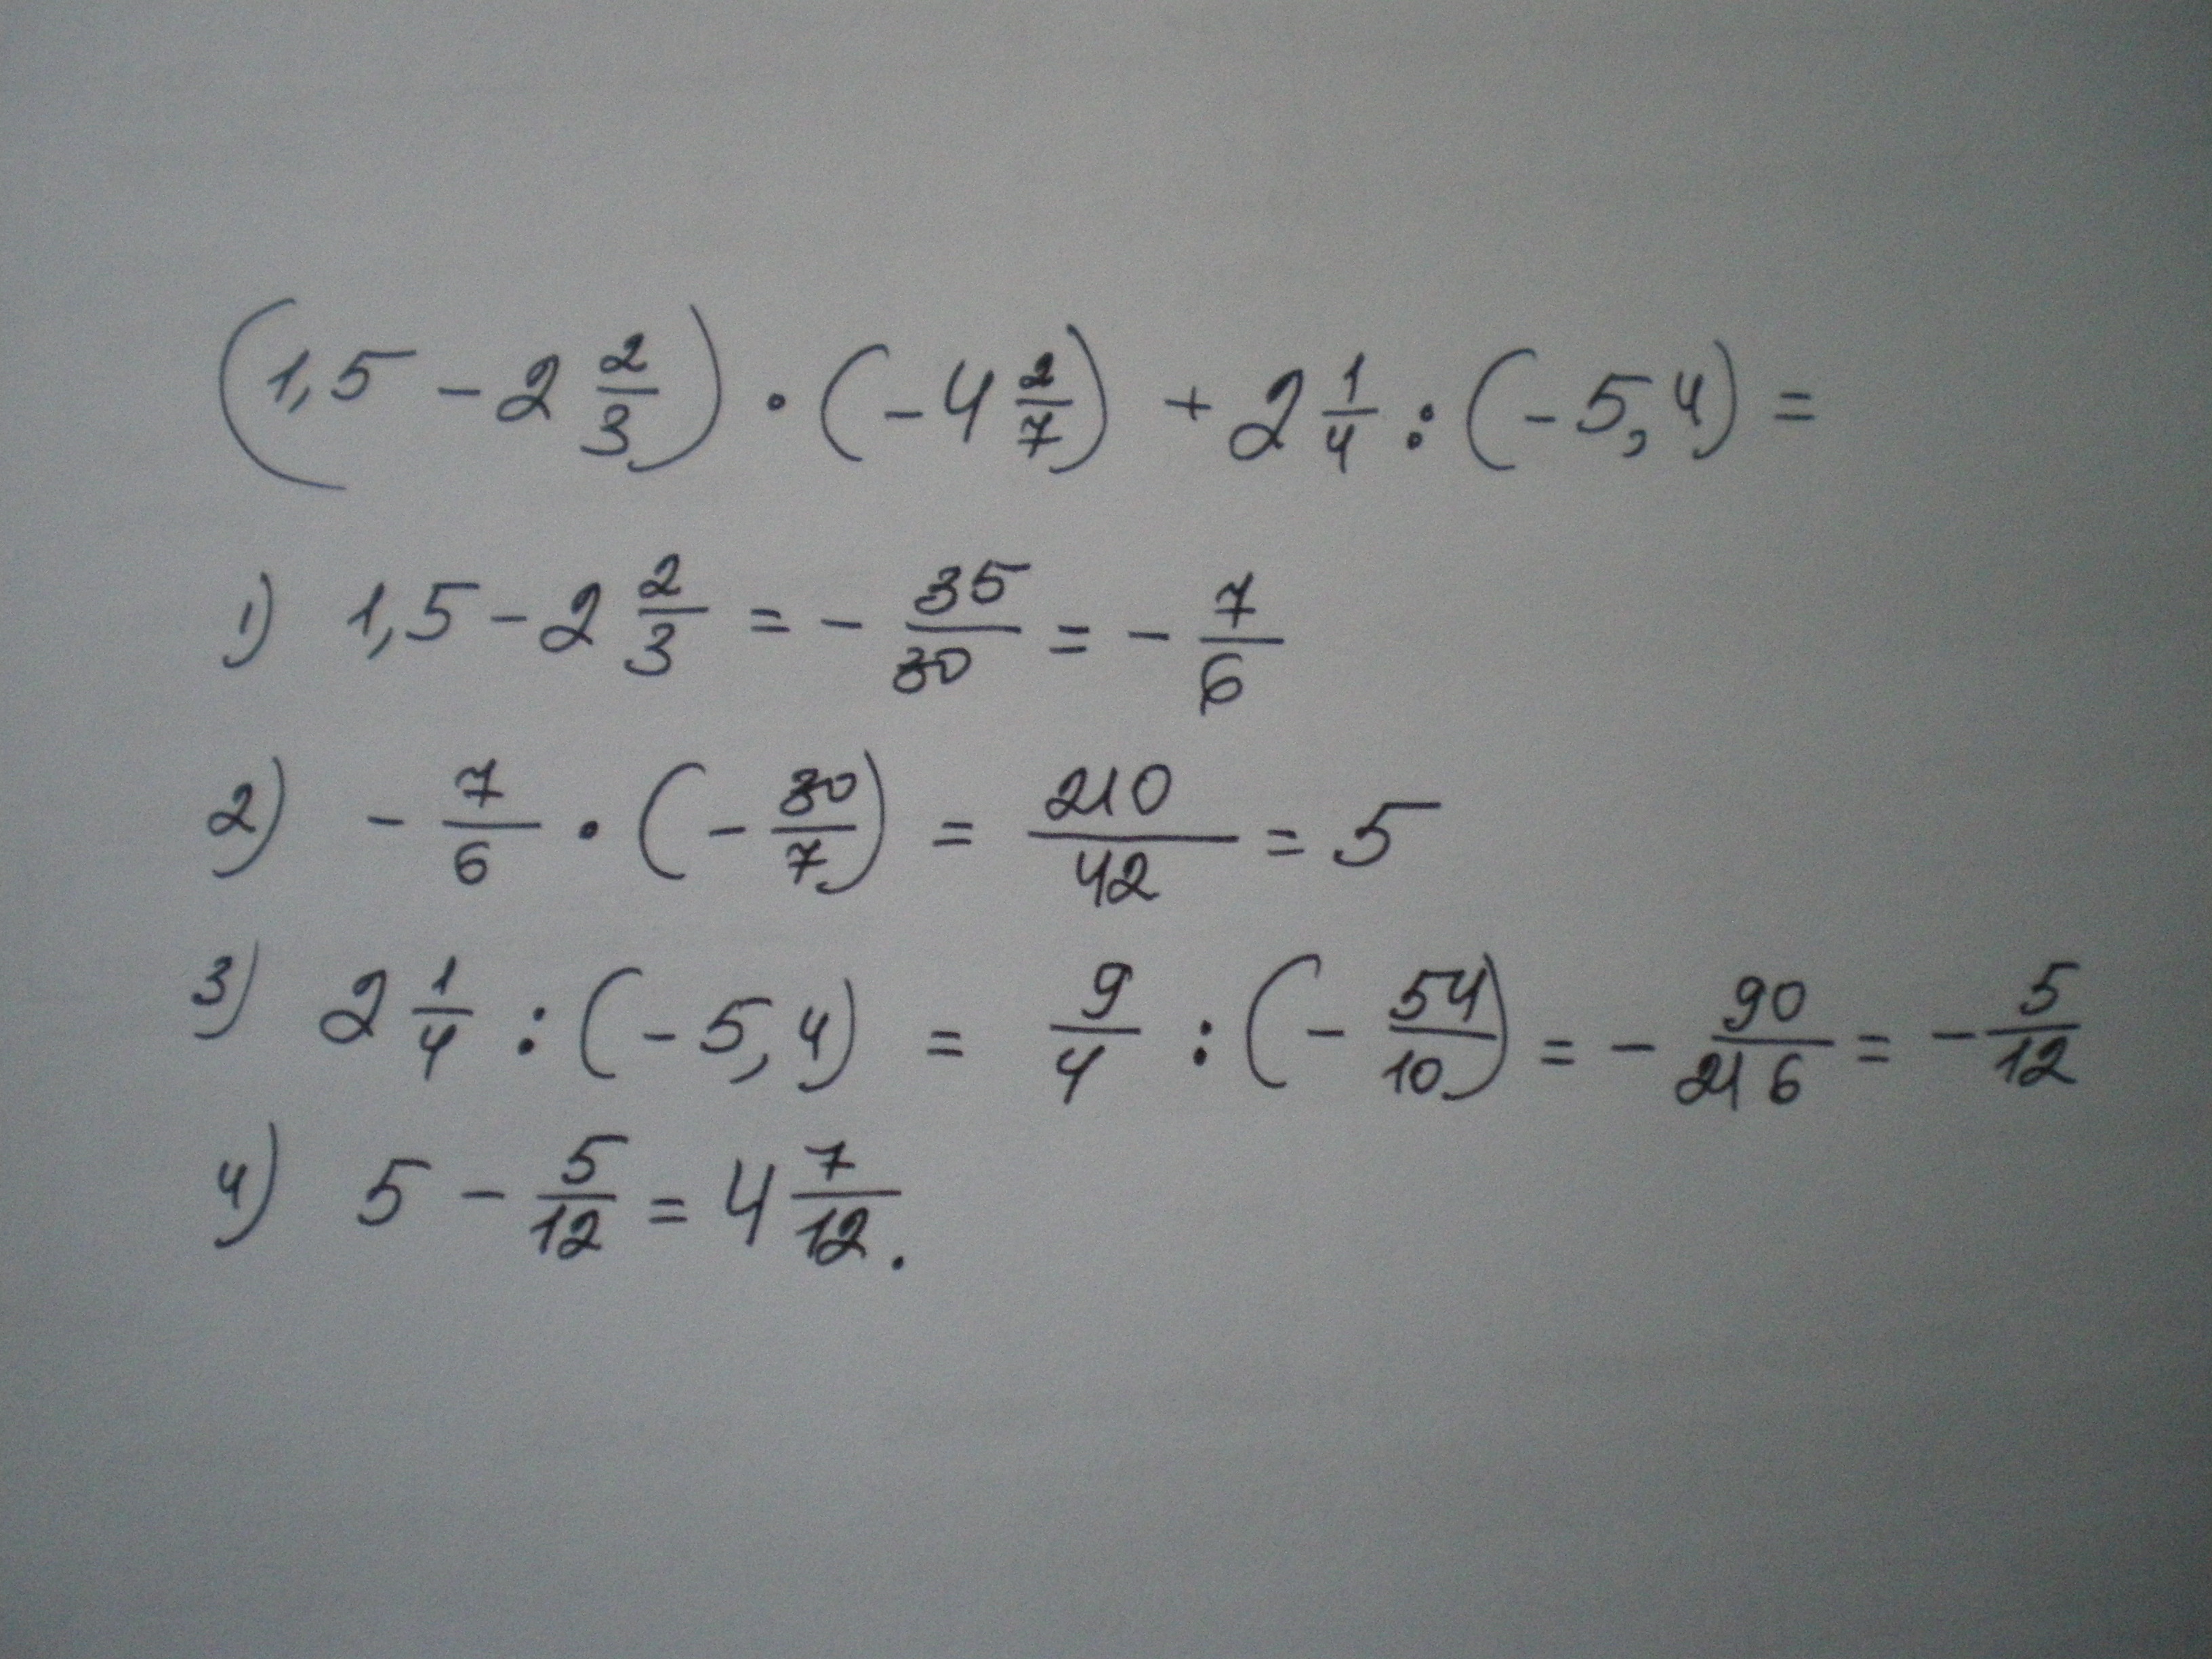 (1,5 - 2 2/3) · (-4 2/7) + 2 1/4 : (-5,4) =
1) 1,5 - 2 2/3 = - 35/30 = - 7/6
2) - 7/6 · (- 30/7) = 210/42 = 5
3) 2 1/4 : (-5,4) = 9/4 : (- 54/10) = - 90/216 = - 5/12
4) 5 - 5/12 = 4 7/12.